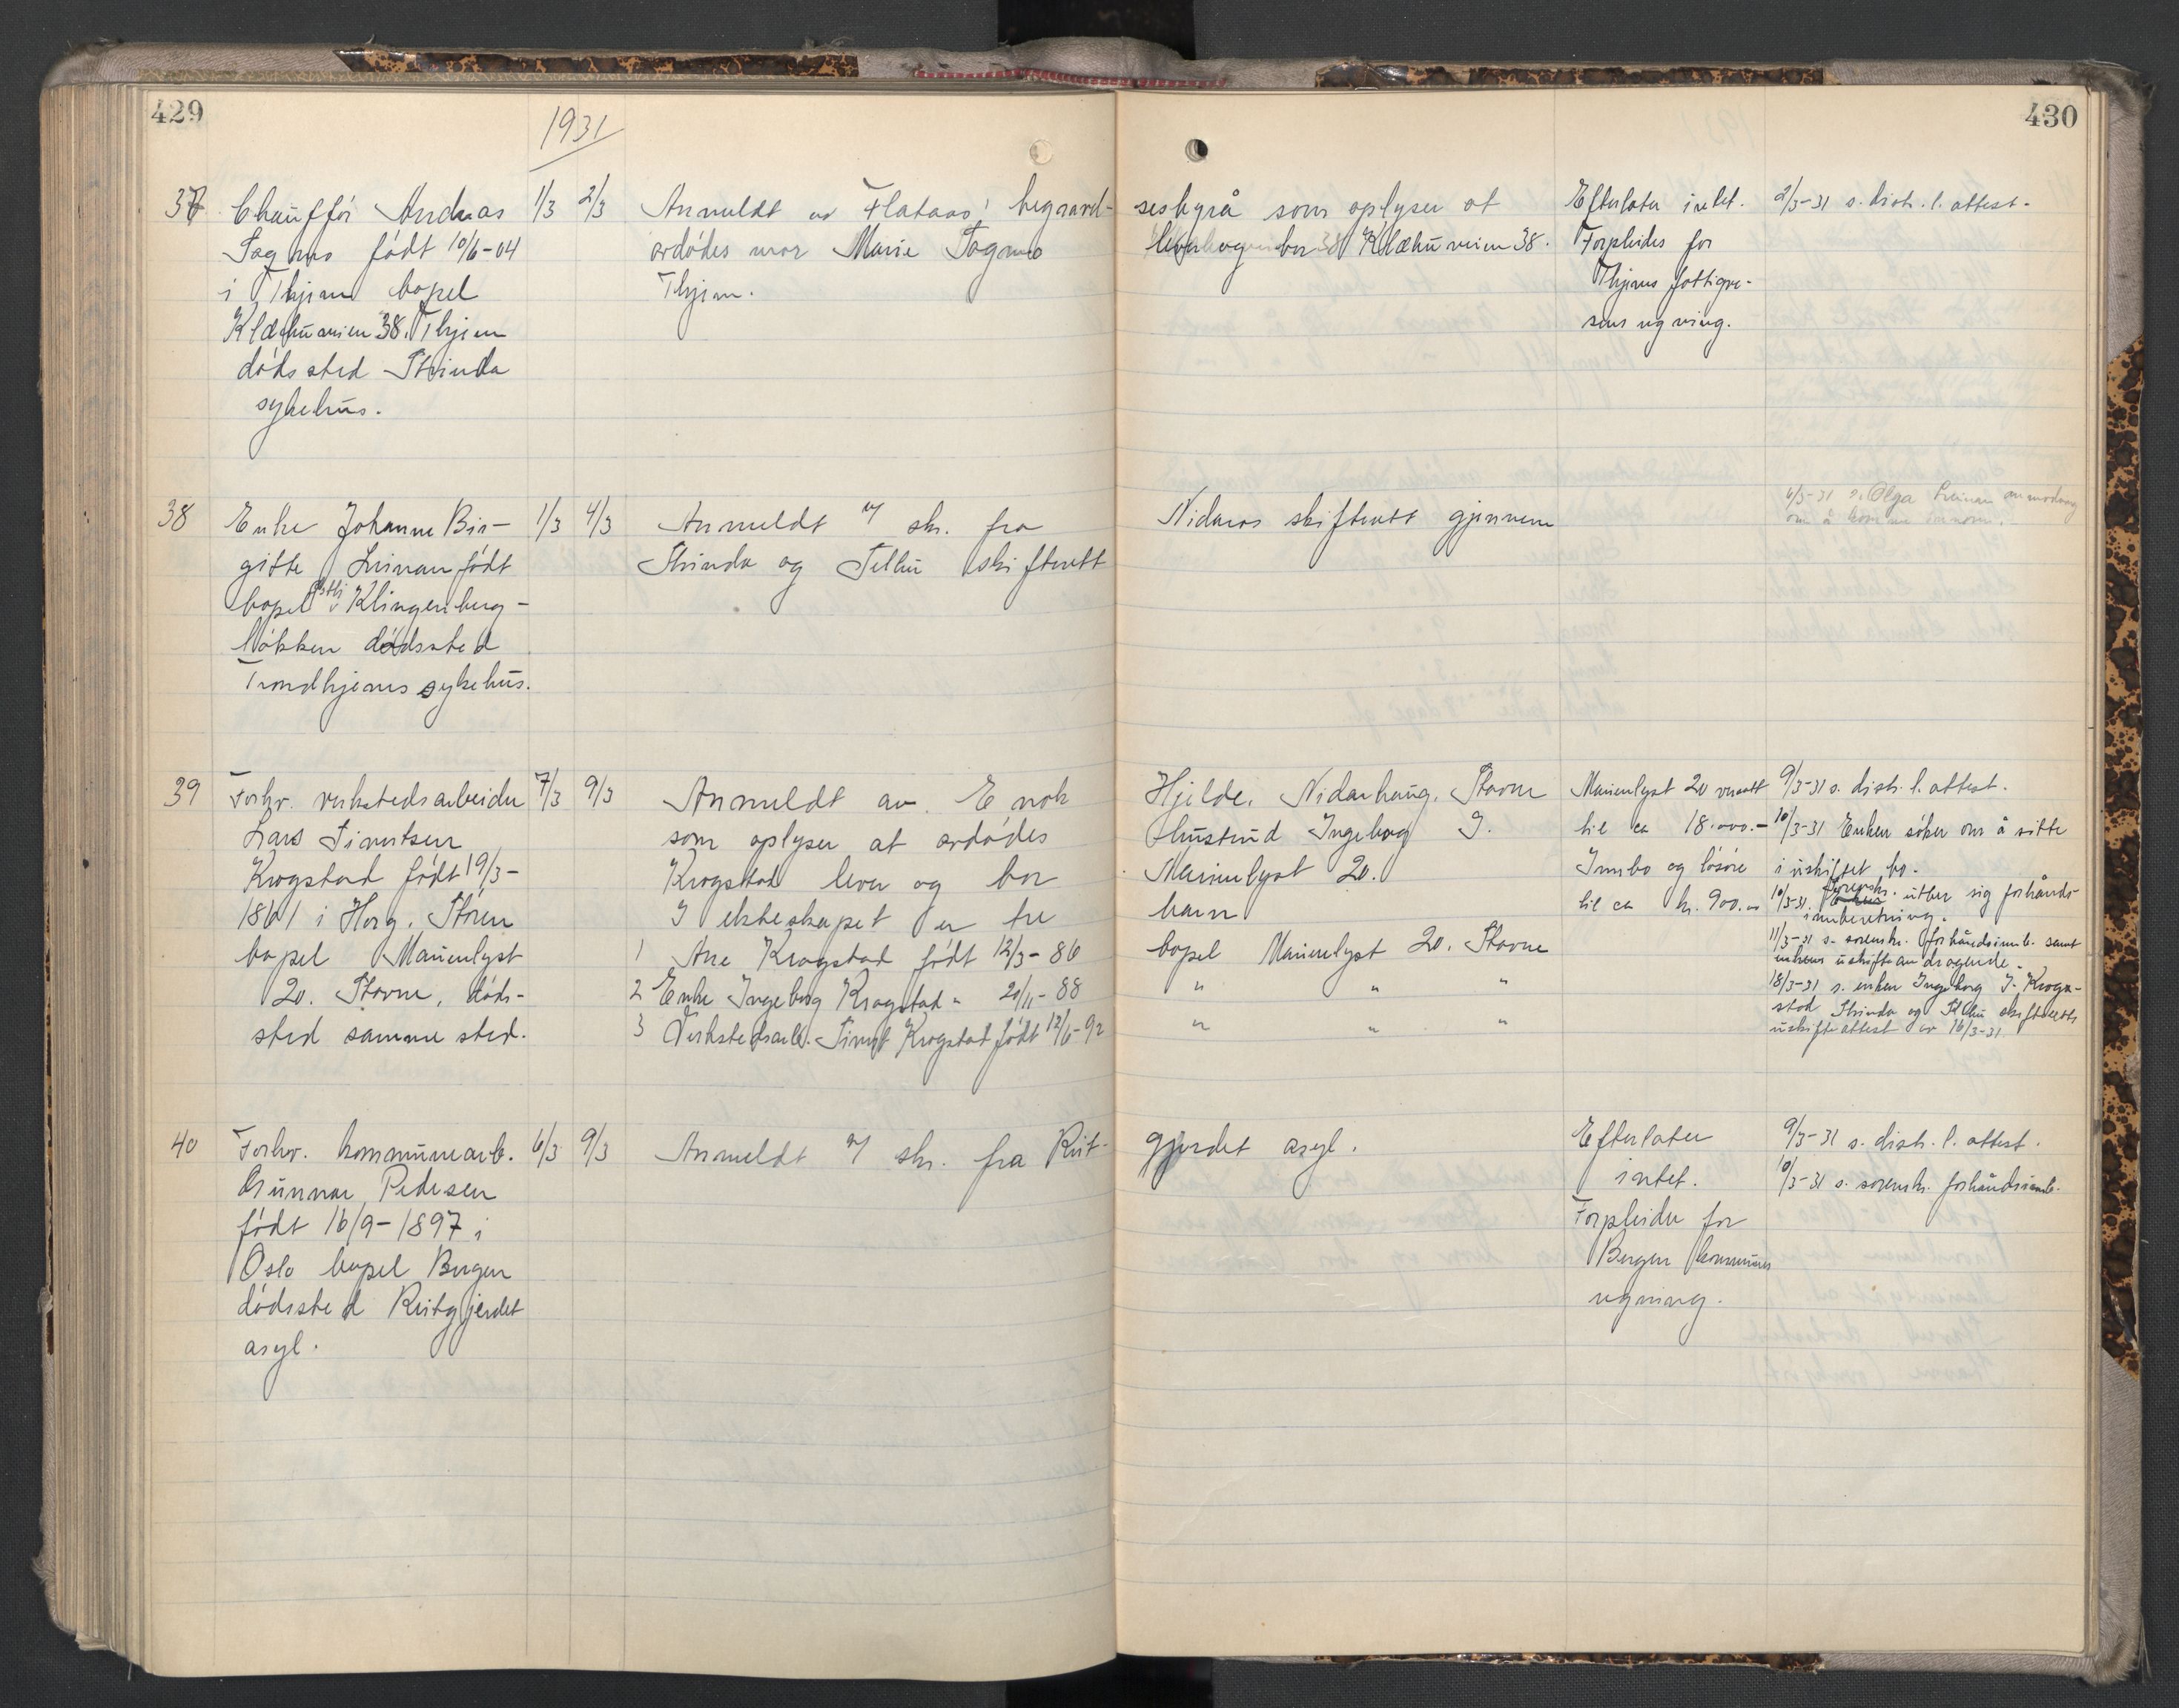 429
1931
37 Chauffør Andreas 1/3 2/3 Anmeldt av Flataas' begravel-
Sagmo født 10/6-04 avdødes mor Marie Sagmo
i Thjem bopel Thjem.
Klæbuveien 38. Thjem
dødssted Strinda
sykehus.
38 Enke Johanne Bir- 1/3 4/3 Anmeldt v/ skr. fra
gitte Leinan født Strinda og Selbu skifterett
bopel Østli v Klingenberg-
løkken dødssted
Trondhjems sykehus.
39 Forhv. verkstedsarbeider 7/3 9/3 Anmeldt av E nok
Lars Simutsen som oplyser at avdødes
Krogstad født 19/3- Krogstad lever og bor
1861 i Horg. Støren I ekteskapet er tre
bopel Marienlyst 1 Ane Krogstad født 12/3-86
20. Stavne, døds- 2 Enke Ingeborg Krogstad " 20/11-88
sted samme sted. 3 Verkstedsarb. Simut Krogstad født 12/6-92
40 Forhv. kommunearb. 6/3 9/3 Anmeldt v/ skr. fra Reit-
Gunnar Pedersen
født 16/9-1897 i
Oslo bopel Bergen
dødssted Reitgjerdet
asyl.
430
sesbyrå som oplyser at Efterlater intet. 2/3-31 s. distr. l. attest.
lever og bor Klæbuveien 38. Forpleides for
Thjems fattigve-
sens regning.
Nidaros skifterett gjennem 6/3-31 s. Olga Leinan anmodning
om å komme innom.
Hjelde. Nidarhaug. Stavne Marienlyst 20 verdt 9/3-31 s. distr. l. attest.
Hustrud Ingeborg J. til ca 18.000.- 10/3-31 Enken søker om å sitte
Marienlyst 20. Innbo og løsøre i uskiftet bo.
barn til ca kr. 900.00 10/3-31. sorenskr. utber sig forhånds-
innberetning.
bopel Marienlyst 20. Stavne 11/3-31 s. sorenskr. forhåndsinnb. samt
enkens uskifteandragende.
" " " 18/3-31 s. enken Ingeborg J. Krogs-
tad Strinda og Selbu skifteretts
" " " uskifteattest av 16/3-31.
gjerdet asyl. Efterlater 9/3-31 s. distr. l. attest.
intet. 10/3-31 s. sorenskr. forhåndsinnb.
Forpleidei for
Bergen kommunes
regning.